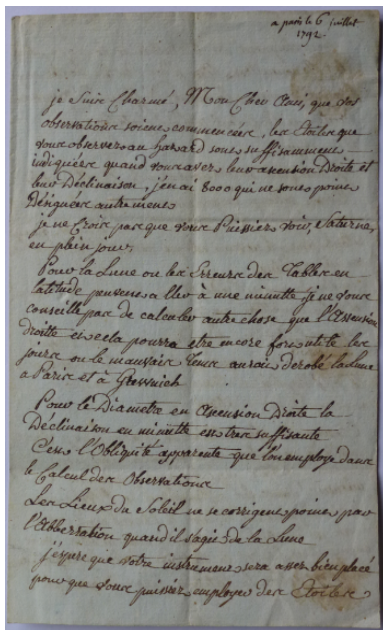 a paris le 6 juillet
1792
je Suis Charmé, Mon Cher Ami, que vos
observations soient commencées, les Etoiles que
vous observez au hazard sont suffisamment
indiquées quand vous avez leur ascension Droite et
leur Déclinaison, j'en ai 8000 qui ne sont point
Désignées autrement
je ne Crois pas que vous Puissiez voir, Saturne,
en plein jour,
Pour la Lune ou les Erreurs des Tables en
latitude peuvent aller à une minutte, je ne vous
conseille pas de calculer autre chose que l'Ascension
droitte et cela pourra etre encore fort utile les
jours ou le mauvais Tems aurait derobé la lune
a Paris et à Greenwich
Pour le Diametre en Ascension Droite la
Déclinaison en minutte est tres suffisante
C'est l'Obliquité apparente que l'on employe dans
le Calcul des Observations
Les Lieux du Soleil ne se corrigent point par
l'Abberration quand il s'agit de la Lune
j'espere que votre instrument sera assez bien placé
pour que vous puissiez employer des Etoiles